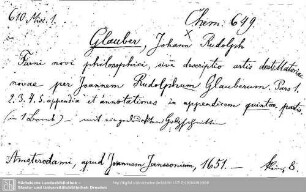 610. Misc. 1. Chem. 649.
Glauber, Johann Rudolph
Furni novi philosophici, sive descriptio artis destillatoriae
novae per Joannem Rudolphum Glauberum. Pars 1.
2. 3. 4. 5. appendix et annotationes in appendicem quintae partis
(in 1 Bande) – mit
Amsterodami, apud Joannem Janssonium, 1651.